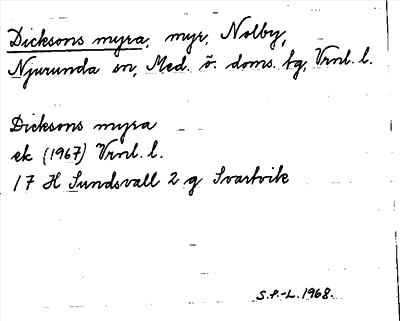 Dicksons myra, myr, Nolby,
Njurunda sn, Med. ö. doms. bg, Vrnl. l.
Dicksons myra
ek (1967) Vrnl. l.
17 H Sundsvall 2 g Svartvik
S.P.-L. 1968.